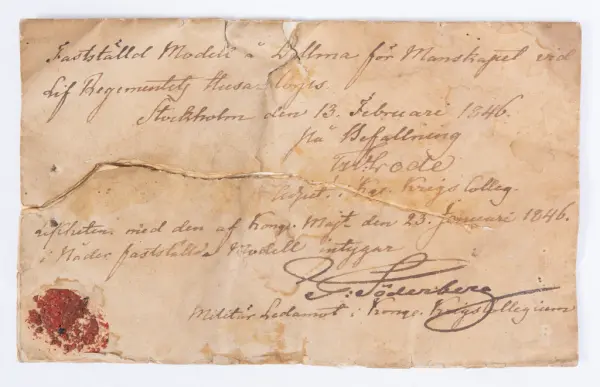 Fastställd Modell å Dollma för Manskapet vid
Lif Regementets Husar Corps.
Stockholm den 13. Februari 1846.
På Befallning
Adjut. i Kge. Krigs Colleg.
med den af Kongl. Majt. den 23. Januari 1846.
i Nåder fastställda Modell intygar
G: Söderberg
Militär Ledamot i Kongl. Krigs Collegium